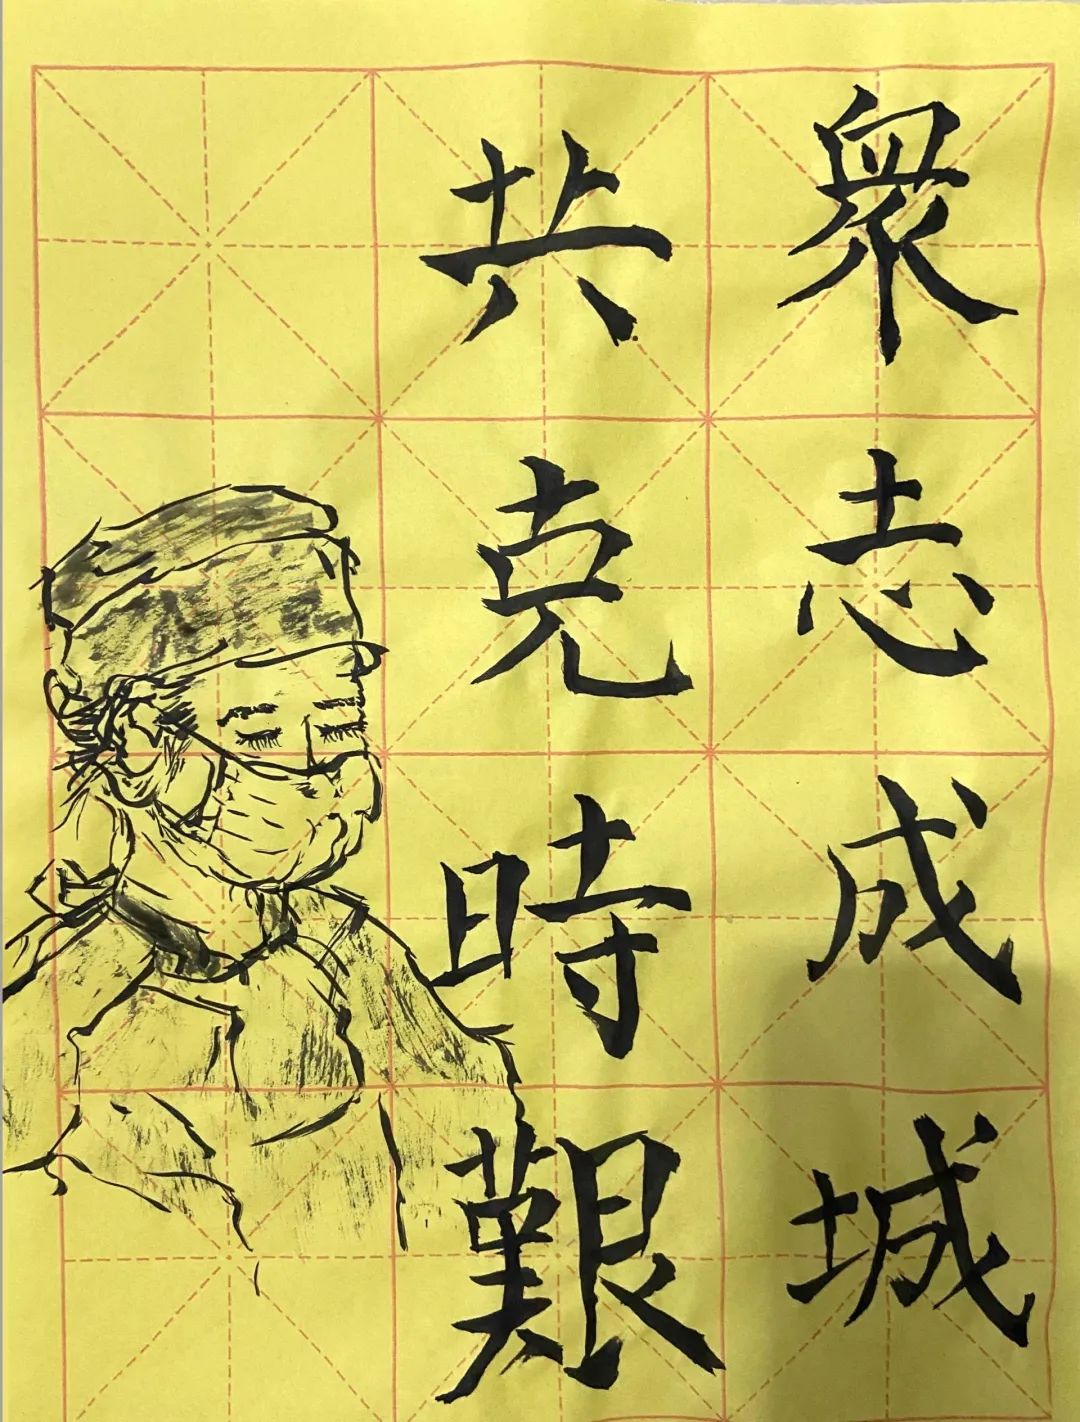 衆志成城
共克時艱